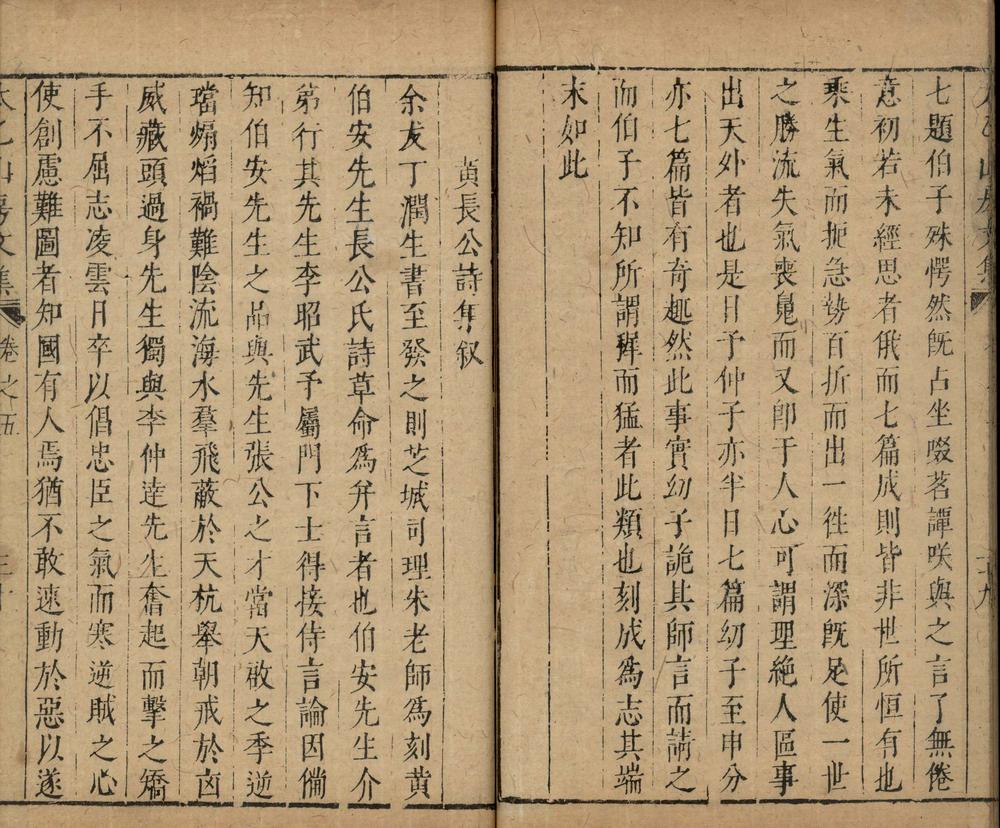 七題伯子殊愕然既占坐啜茗譚咲與之言了無倦
意初若未經思者俄而七篇成則皆非世所恒有也
乘生氣而扼急勢百折而出一徃而深既足使一世
之勝流失氣喪鬼而又卽于人心可謂理絶人區事
出天外者也是日予仲子亦半日七篇幼子至申分
亦七篇皆有奇趣然此事實幼子詭其師言而請之
而伯子不知所謂稺而猛者此類也刻成爲志其端
末如此
黄長公詩集叙
余友丁潤生書至發之則芝城司理朱老師爲刻黄
伯安先生長公氏詩草命爲弁言者也伯安先生介
第行其先生李昭武予屬門下士得接侍言論因備
知伯安先生之品與先生張公之才當天啟之季逆
璫煽熖禍難陰流海水羣飛蔽於天杭舉朝戒於凶
威藏頭過身先生獨與李仲達先生奮起而擊之矯
手不屈志凌雲日卒以倡忠臣之氣而寒逆賊之心
使創慮難圖者知國有人焉猶不敢速動於惡以遂
太乙山房文集
卷之五
三十